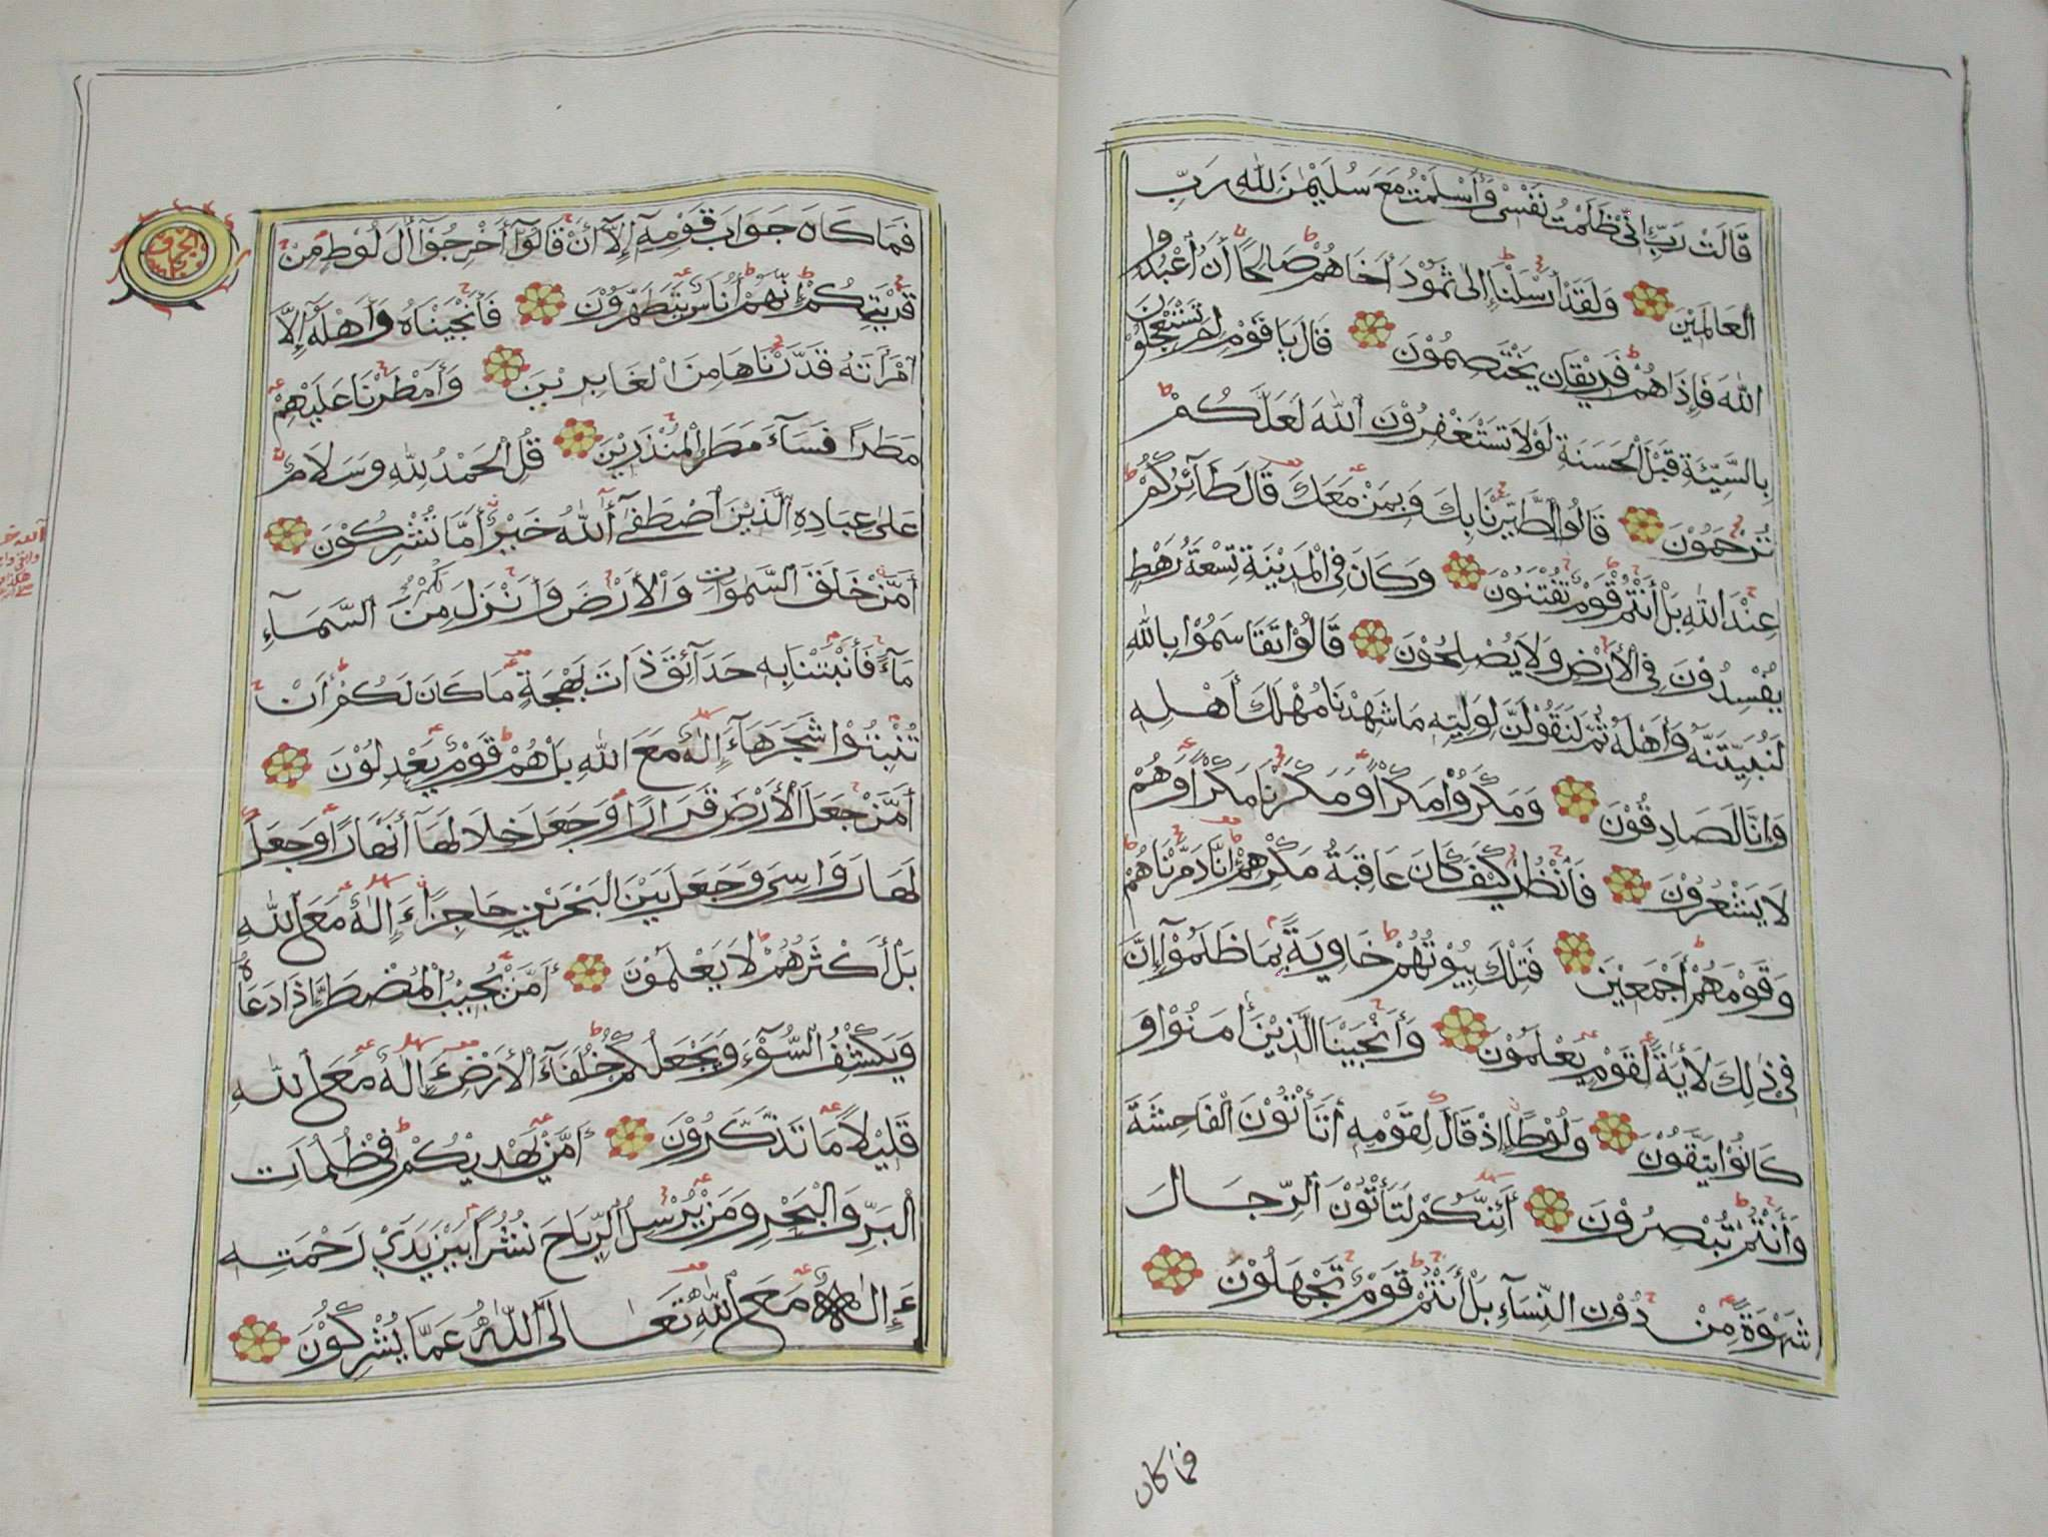 قَالَتْ رَبِّ إِنِّي ظَلَمْتُ نَفْسِي وَأَسْلَمْتُ مَعَ سُلَيْمٰنَ لِلّٰهِ رَبِّ
الْعَالَمِيْنَ وَلَقَدْ أَرْسَلْنَا إِلٰى ثَمُوْدَ أَخَاهُمْ صَالِحًا أَنِ اعْبُدُوا
اللّٰهَ فَإِذَا هُمْ فَرِيْقَانِ يَخْتَصِمُوْنَ قَالَ يَا قَوْمِ لِمَ تَسْتَعْجِلُوْنَ
بِالسَّيِّئَةِ قَبْلَ الْحَسَنَةِ لَوْلَا تَسْتَغْفِرُوْنَ اللّٰهَ لَعَلَّكُمْ
تُرْحَمُوْنَ قَالُوا اطَّيَّرْنَا بِكَ وَبِمَنْ مَعَكَ قَالَ طَآئِرُكُمْ
عِنْدَ اللّٰهِ بَلْ أَنْتُمْ قَوْمٌ تُفْتَنُوْنَ وَكَانَ فِي الْمَدِيْنَةِ تِسْعَةُ رَهْطٍ
يُفْسِدُوْنَ فِي الْأَرْضِ وَلَا يُصْلِحُوْنَ قَالُوْا تَقَاسَمُوْا بِاللّٰهِ
لَنُبَيِّتَنَّهُ وَأَهْلَهُ ثُمَّ لَنَقُوْلَنَّ لِوَلِيِّهِ مَا شَهِدْنَا مُهْلَكَ أَهْلِهِ
وَإِنَّا لَصَادِقُوْنَ وَمَكَرُوْا مَكْرًا وَمَكَرْنَا مَكْرًا وَهُمْ
لَا يَشْعُرُوْنَ فَانْظُرْ كَيْفَ كَانَ عَاقِبَةُ مَكْرِهِمْ إِنَّا دَمَّرْنَاهُمْ
وَقَوْمَهُمْ أَجْمَعِيْنَ فَتِلْكَ بِيُوْتُهُمْ خَاوِيَةً بِمَا ظَلَمُوْآ إِنَّ
فِيْ ذٰلِكَ لَأٰيَةً لِقَوْمٍ يَعْلَمُوْنَ وَأَنْجَيْنَا الَّذِيْنَ أٰمَنُوْا وَ
كَانُوْا يَتَّقُوْنَ وَلُوْطًا إِذْ قَالَ لِقَوْمِهِ أَتَأْتُوْنَ الْفَاحِشَةَ
وَأَنْتُمْ تُبْصِرُوْنَ أَئِنَّكُمْ لَتَأْتُوْنَ الرِّجَالَ
شَهْوَةً مِنْ دُوْنِ النِّسَآءِ بَلْ أَنْتُمْ قَوْمٌ تَجْهَلُوْنَ
فما كان
فَمَا كَانَ جَوَابَ قَوْمِهِ إِلَّآ أَنْ قَالُوْآ أَخْرِجُوْآ أٰلَ لُوْطٍ مِنْ
قَرْيَتِكُمْ إِنَّهُمْ أُنَاسٌ يَتَطَهَّرُوْنَ فَأَنْجَيْنَاهُ وَأَهْلَهُ إِلَّا
امْرَأَتَهُ قَدَّرْنَاهَا مِنَ الْغَابِرِيْنَ وَأَمْطَرْنَا عَلَيْهِمْ
مَطَرًا فَسَآءَ مَطَرُ الْمُنْذَرِيْنَ قُلِ الْحَمْدُ لِلّٰهِ وَسَلَامٌ
عَلٰى عِبَادِهِ الَّذِيْنَ اصْطَفٰى أٰللّٰهُ خَيْرٌ أَمَّا تُشْرِكُوْنَ
أَمَّنْ خَلَقَ السَّمٰوَاتِ وَالْأَرْضَ وَأَنْزَلَ لَكُمْ مِنَ السَّمَآءِ
مَآءً فَأَنْبَتْنَا بِهِ حَدَآئِقَ ذَاتَ بَهْجَةٍ مَا كَانَ لَكُمْ أَنْ
تُنْبِتُوْا شَجَرَهَآ ءَإِلٰهٌ مَعَ اللّٰهِ بَلْ هُمْ قَوْمٌ يَعْدِلُوْنَ
أَمَّنْ جَعَلَ الْأَرْضَ قَرَارًا وَجَعَلَ خِلَالَهَآ أَنْهَارًا وَجَعَلَ
لَهَا رَوَاسِيَ وَجَعَلَ بَيْنَ الْبَحْرَيْنِ حَاجِزًا ءَإِلٰهٌ مَعَ اللّٰهِ
بَلْ أَكْثَرُهُمْ لَا يَعْلَمُوْنَ أَمَّنْ يُجِيْبُ الْمُضْطَرَّ إِذَا دَعَاهُ
وَيَكْشِفُ السُّوْٓءَ وَيَجْعَلُكُمْ خُلَفَآءَ الْأَرْضِ ءَإِلٰهٌ مَعَ اللّٰهِ
قَلِيْلًا مَا تَذَكَّرُوْنَ أَمَّنْ يَهْدِيْكُمْ فِيْ ظُلُمَاتِ
الْبَرِّ وَالْبَحْرِ وَمَنْ يُرْسِلُ الرِّيَاحَ نُشُرًا بَيْنَ يَدَيْ رَحْمَتِهِ
ءَإِلٰهٌ مَعَ اللّٰهِ تَعَالَى اللّٰهُ عَمَّا يُشْرِكُوْنَ